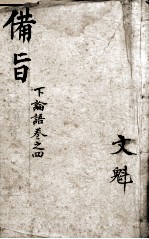 備旨
下論語卷之四
文魁